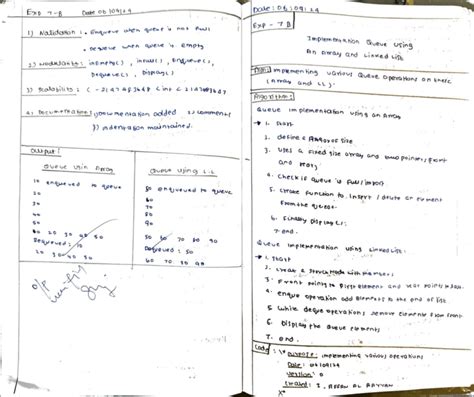 Exp 7-B Date 06/09/24
1) Validation : Enqueue when queue is not full
Dequeue when queue is empty
2) Modularity : Enqueue(),
Dequeue(), Display()
3) Scalability : (-2147483648 < int < 2147483647
4) Documentation : 1) Documentation added 2) comments
3) indentation maintained.
Output :
Queue Usin Array
10 enqueued to queue
20
30
40
50
10 20 30 40 50
Dequeued : 10
20 30 40 50
Queue Using L.L
50 enqueued to queue
60
70
80
90
50 60 70 80 90
Dequeued : 50
60 70 80 90
o/p
Date : 06/09/24
Exp - 7 B
Implementation Queue Using
An Array and Linked List
Aim : Implementing various Queue Operations an
(Array and LL).
Algorithm :
Queue Implementation using an Array
→ 1. Start
2. Define a size
3. Uses a fixed size array and two pointers, front
and rear.
4. Check if queue is full / 
5. Create function to insert / delete an element
from the queue.
6. Finally Display ();
7. end
Queue Implementation using Linked List :
→ 1. Start
2. Creat a
3. Front points to first element and rear points to last.
4. enque operation add elements to the end of list
5. While deque operations remove elements from front
6. Display the queue elements
7. end.
Code : /* Purpose : Implementing various operations
Date : 06/09/24
Version : 
*/